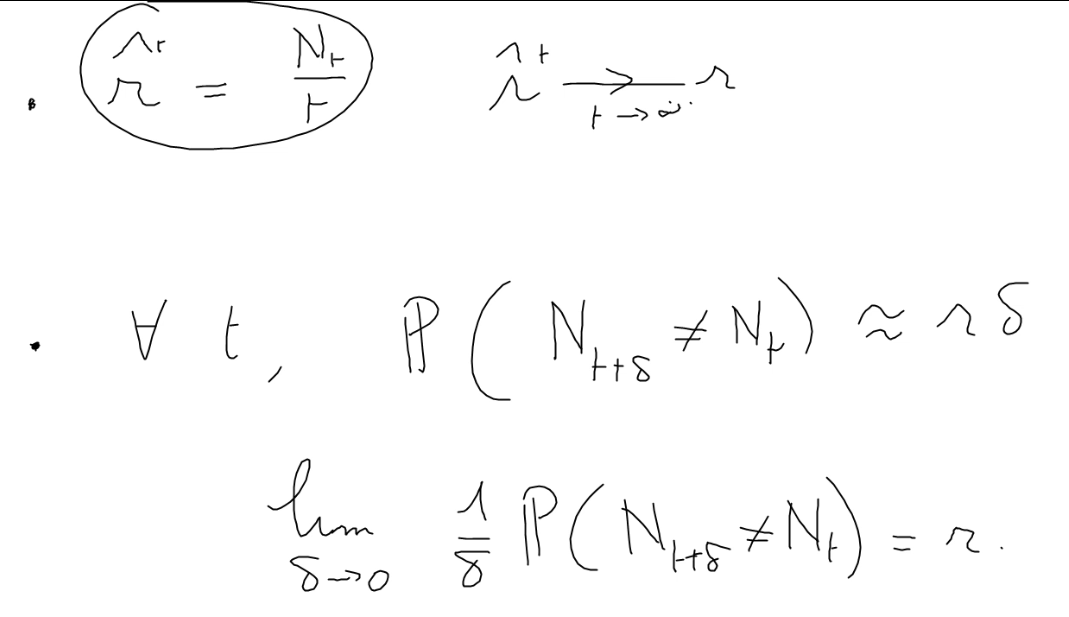 • r̂ᵗ = N_t / t    r̂ᵗ ⟶ r
t → ∞
• ∀ t, ℙ( N_{t+δ} ≠ N_t ) ≈ r δ
lim_{δ→0} 1/δ ℙ( N_{t+δ} ≠ N_t ) = r.